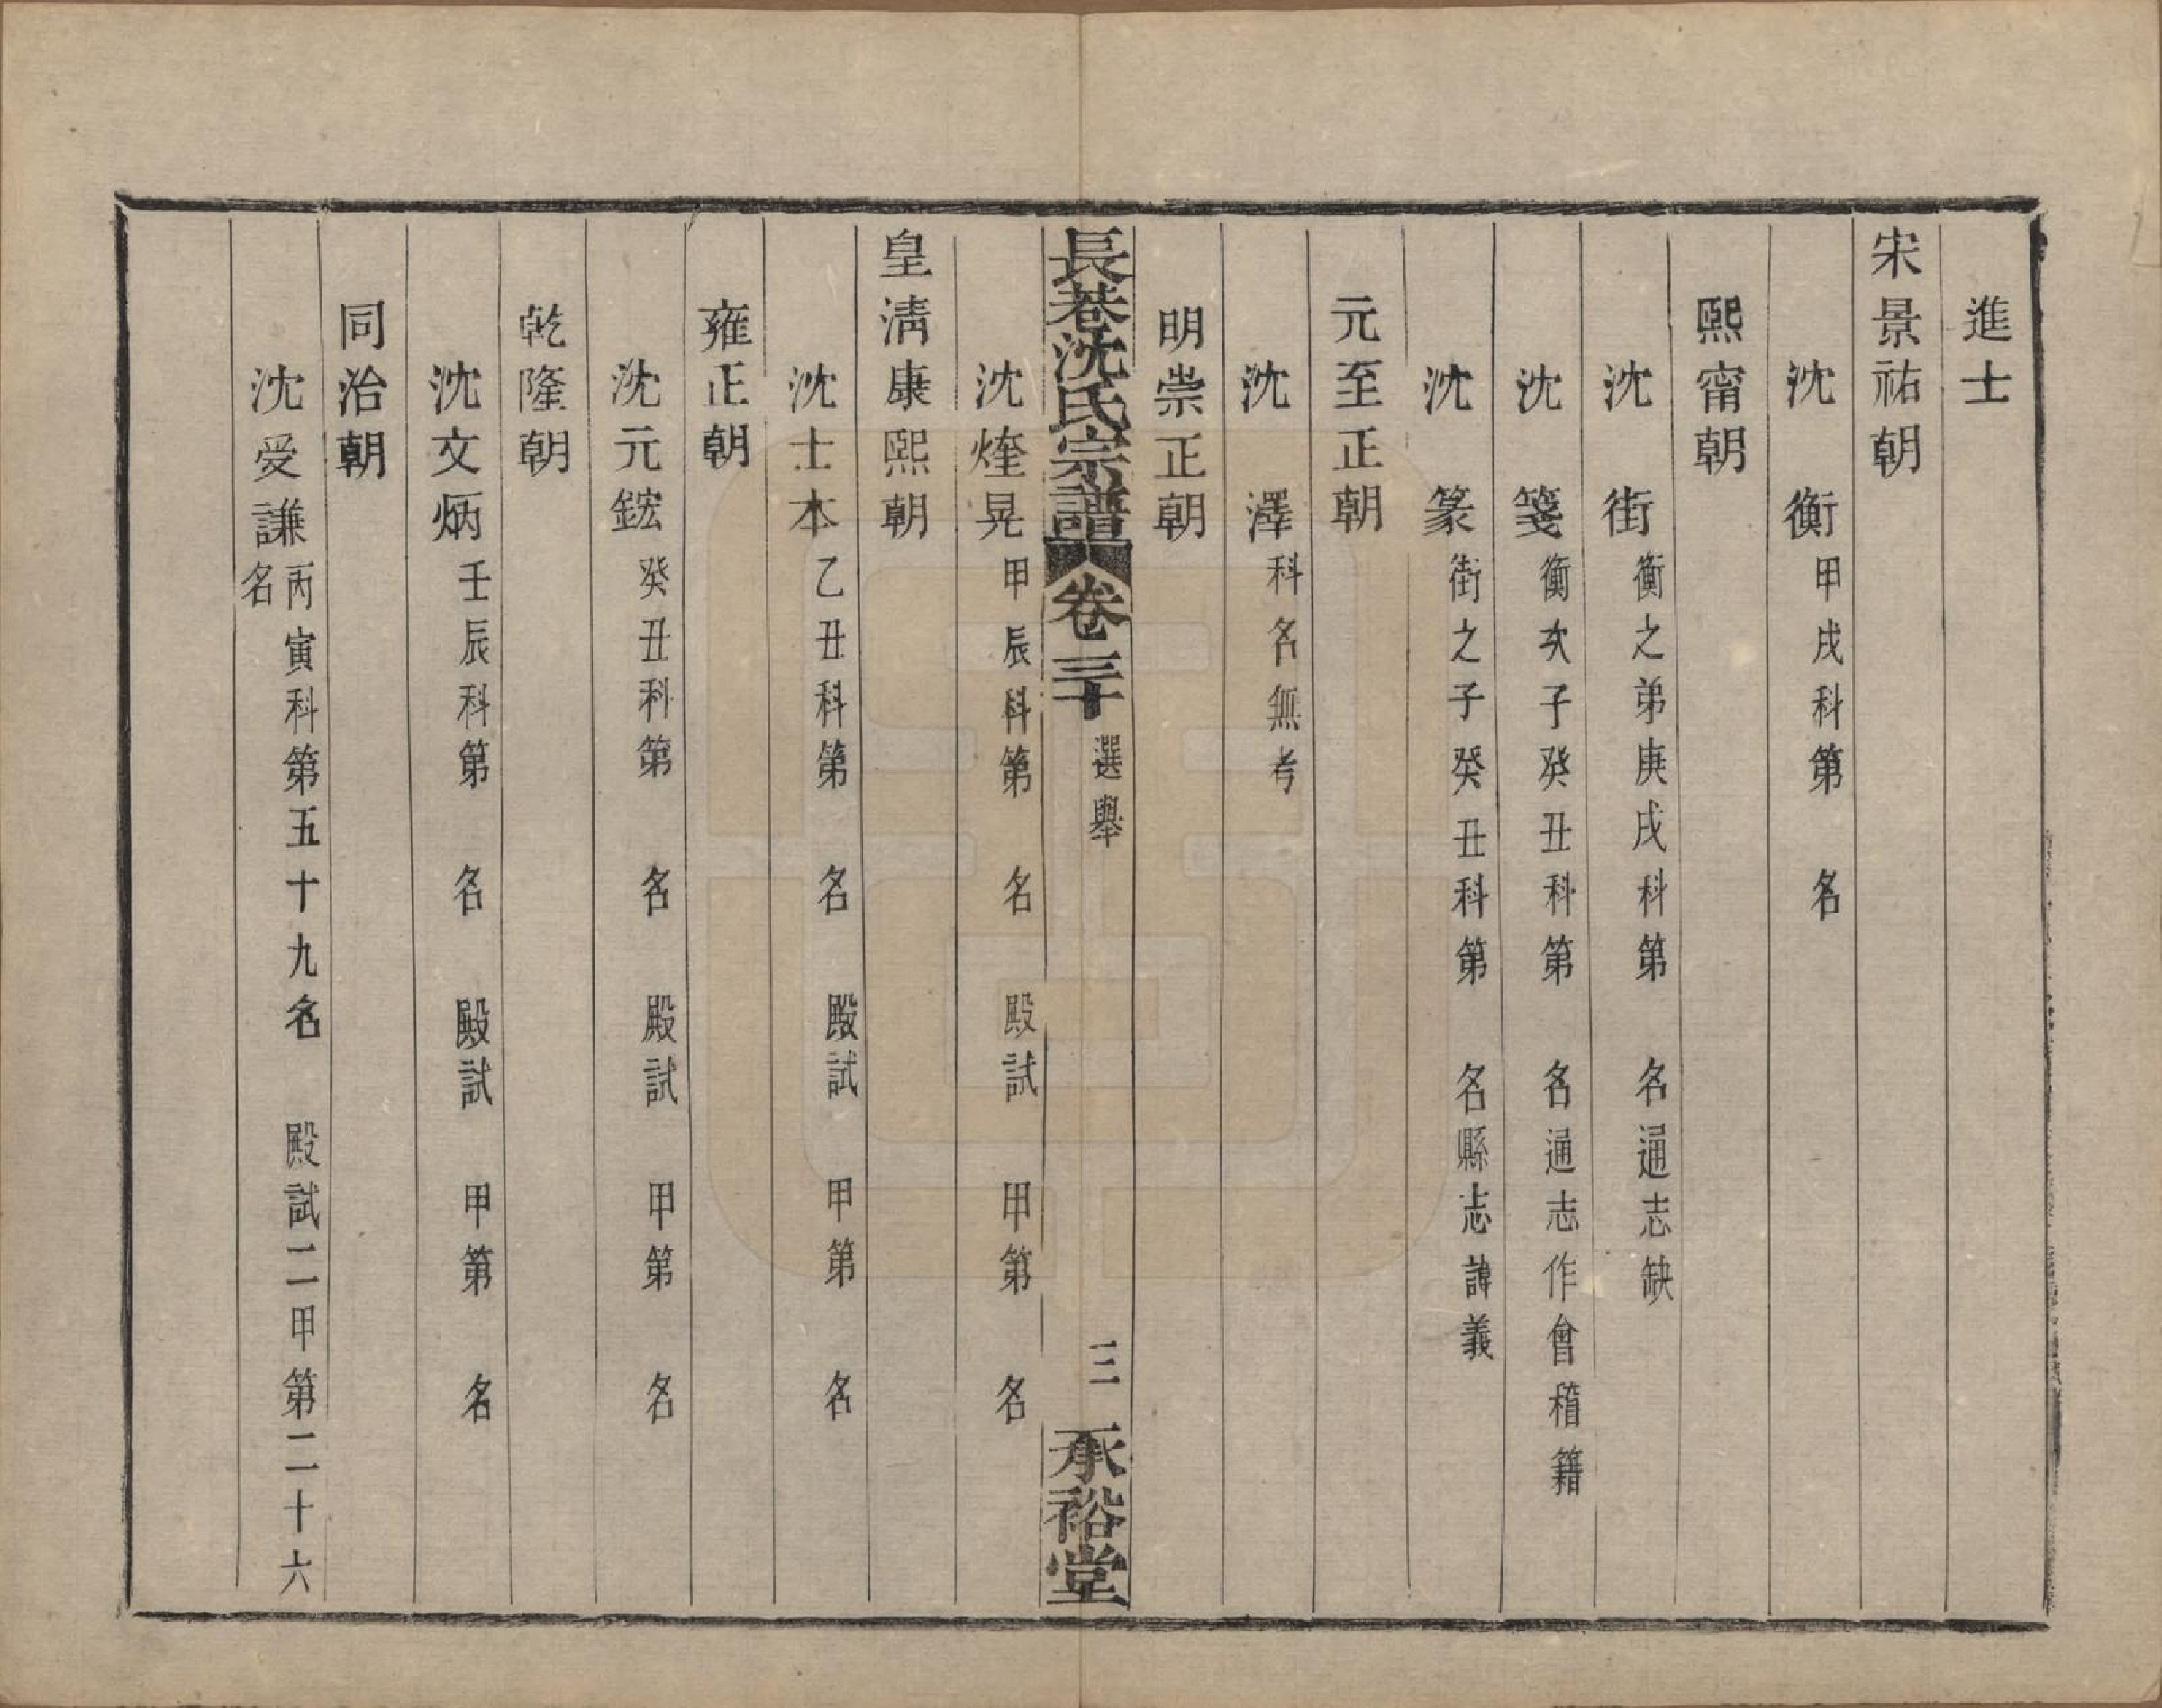 進士
宋景祐朝
沈　衡甲戌科第　名
熙甯朝
沈　街衡之弟庚戌科第　名通志缺
沈　箋衡次子癸丑科第　名通志作會稽籍
沈　篆街之子癸丑科第　名縣志諱義
元至正朝
沈　澤科名無考
明崇正朝
長巷沈氏宗譜　卷三十　選舉　三　承裕堂
沈煃晃甲辰科第　名　殿試　甲第　名
皇淸康熙朝
沈士本乙丑科第　名　殿試　甲第　名
雍正朝
沈元鋐癸丑科第　名　殿試　甲第　名
乾隆朝
沈文炳壬辰科第　名　殿試　甲第　名
同治朝
沈受謙丙寅科第五十九名　殿試二甲第二十六
名